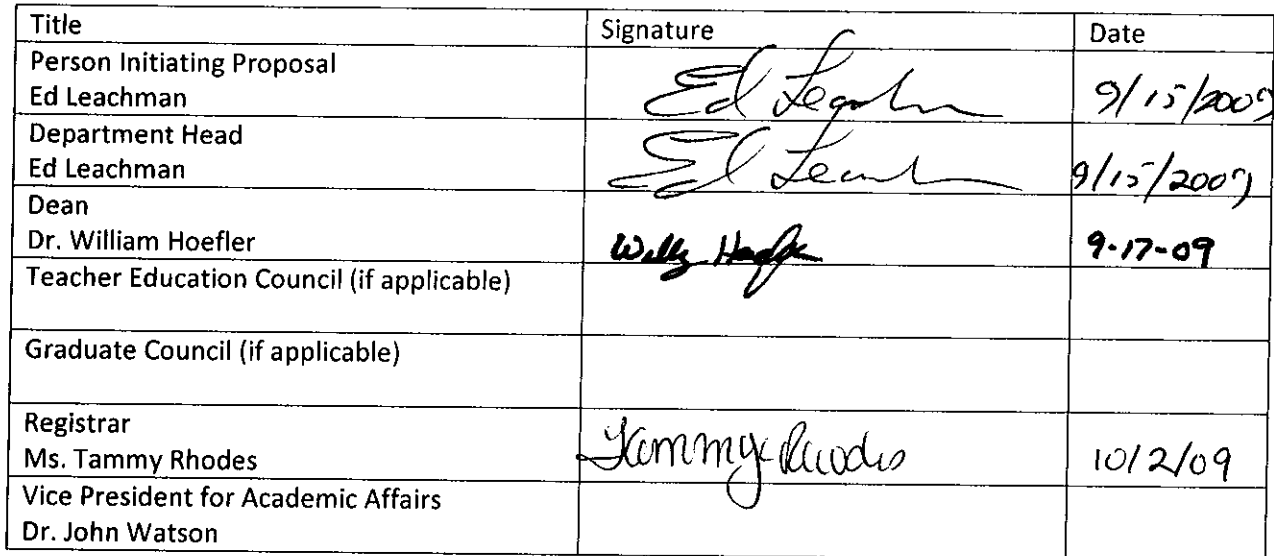 Title Signature Date
Person Initiating Proposal
Ed Leachman Ed Leachman 9/15/2009
Department Head
Ed Leachman Ed Leachman 9/15/2009
Dean
Dr. William Hoefler 9-17-09
Teacher Education Council (if applicable)
Graduate Council (if applicable)
Registrar
Ms. Tammy Rhodes Tammy Rhodes 10/2/09
Vice President for Academic Affairs
Dr. John Watson